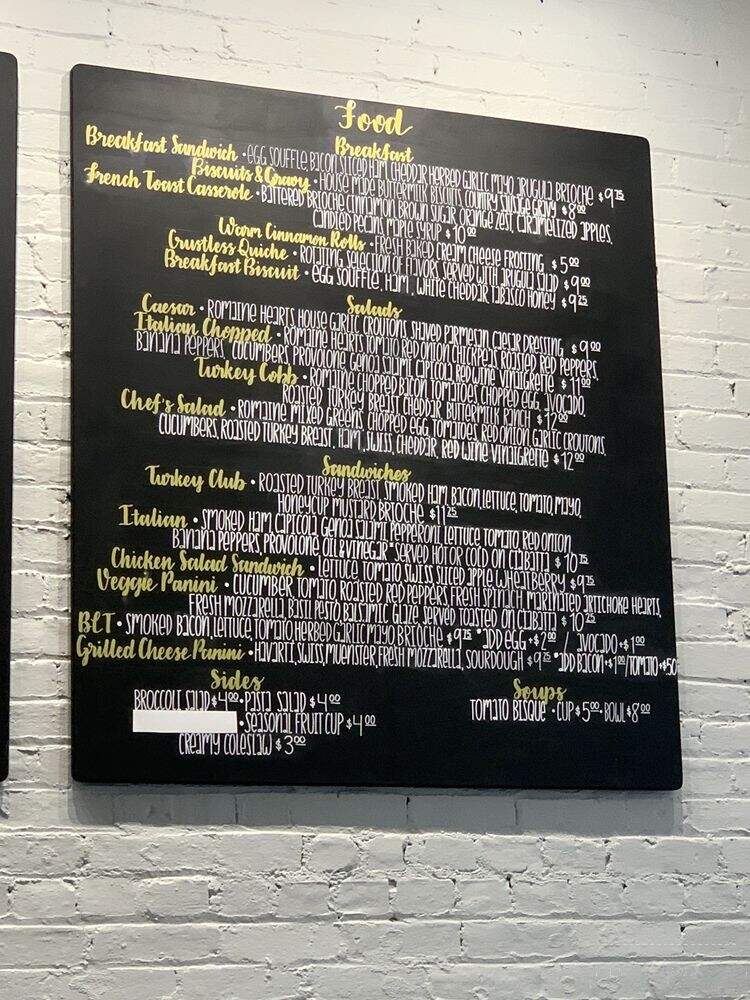 Food
Breakfast
Breakfast Sandwich • EGG SOUFFLE, BACON, SLICED HAM, CHEDDAR, HERBED GARLIC MAYO, ARUGULA, BRIOCHE $9.75
Biscuits & Gravy • HOUSE MADE BUTTERMILK BISCUITS, COUNTRY SAUSAGE GRAVY $8.00
French Toast Casserole • BUTTERED BRIOCHE, CINNAMON BROWN SUGAR, ORANGE ZEST, CARAMELIZED APPLES,
CANDIED PECANS, MAPLE SYRUP $10.00
Warm Cinnamon Rolls • FRESH BAKED CREAM CHEESE FROSTING $5.00
Crustless Quiche • ROTATING SELECTION OF FLAVORS, SERVED WITH ARUGULA SALAD $9.00
Breakfast Biscuit • EGG SOUFFLE, HAM, WHITE CHEDDAR, TABASCO HONEY $9.25
Salads
Caesar • ROMAINE HEARTS, HOUSE GARLIC CROUTONS, SHAVED PARMESAN, CAESAR DRESSING $9.00
Italian Chopped • ROMAINE HEARTS, TOMATO, RED ONION, CHICKPEAS, ROASTED RED PEPPERS,
BANANA PEPPERS, CUCUMBERS, PROVOLONE, GENOA SALAMI, CAPICOLA, RED WINE VINAIGRETTE $11.00
Turkey Cobb • ROMAINE, CHOPPED BACON, TOMATOES, CHOPPED EGG, AVOCADO,
ROASTED TURKEY BREAST, CHEDDAR, BUTTERMILK RANCH $12.00
Chef's Salad • ROMAINE, MIXED GREENS, CHOPPED EGG, TOMATOES, RED ONION, GARLIC CROUTONS,
CUCUMBERS, ROASTED TURKEY BREAST, HAM, SWISS, CHEDDAR, RED WINE VINAIGRETTE $12.00
Sandwiches
Turkey Club • ROASTED TURKEY BREAST, SMOKED HAM, BACON, LETTUCE, TOMATO, MAYO,
HONEYCUP MUSTARD, BRIOCHE $11.25
Italian • SMOKED HAM, CAPICOLA, GENOA SALAMI, PEPPERONI, LETTUCE, TOMATO, RED ONION,
BANANA PEPPERS, PROVOLONE, OIL & VINEGAR *SERVED HOT OR COLD ON CIABATTA $10.75
Chicken Salad Sandwich • LETTUCE, TOMATO, SWISS, SLICED APPLE, WHEATBERRY $9.75
Veggie Panini • CUCUMBER, TOMATO, ROASTED RED PEPPERS, FRESH SPINACH, MARINATED ARTICHOKE HEARTS,
FRESH MOZZARELLA, BASIL PESTO, BALSAMIC GLAZE, SERVED TOASTED ON CIABATTA $10.25
BLT • SMOKED BACON, LETTUCE, TOMATO, HERBED GARLIC MAYO, BRIOCHE $9.75 *ADD EGG +$2.00 / AVOCADO +$1.00
Grilled Cheese Panini • HAVARTI, SWISS, MUENSTER, FRESH MOZZARELLA, SOURDOUGH $9.25 *ADD BACON +$1.00/TOMATO +$.50
Sides
BROCCOLI SALAD $4.00 • PASTA SALAD $4.00
• SEASONAL FRUIT CUP $4.00
CREAMY COLESLAW $3.00
Soups
TOMATO BISQUE • CUP $5.00 • BOWL $8.00